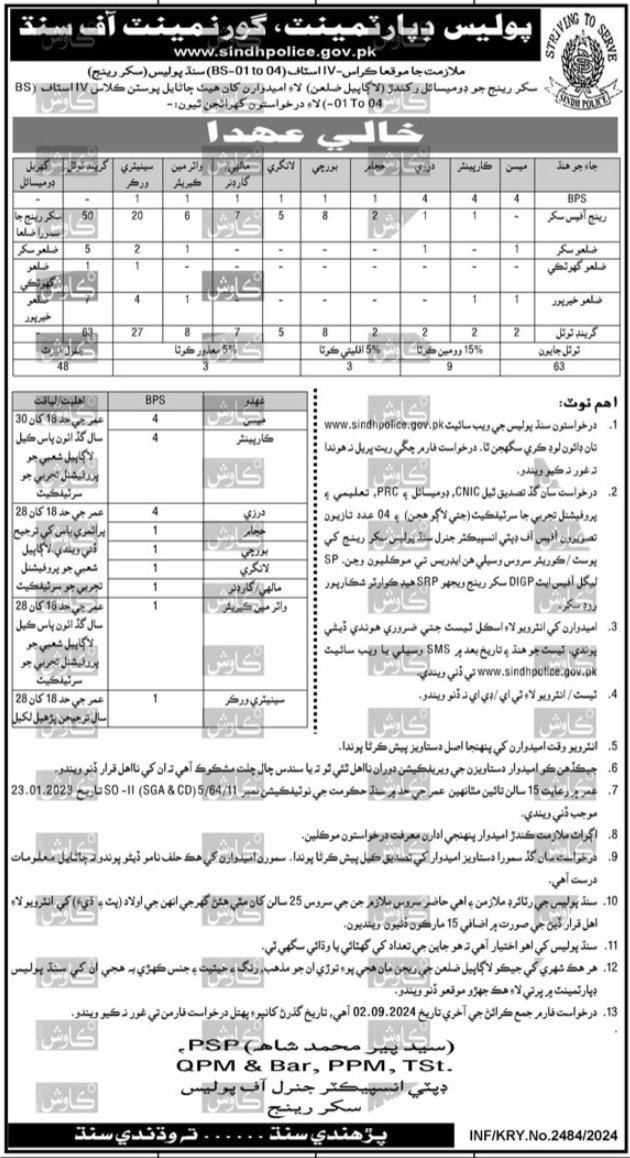 پوليس ڊپارٽمينٽ، گورنمينٽ آف سنڌ
www.sindhpolice.gov.pk
STRIVING TO SERVE
SINDH POLICE
ملازمت جا موقعا ڪلاس-IV اسٽاف (BS-01 to 04) سنڌ پوليس (سکر رينج)
سکر رينج جو ڊوميسائل رکندڙ (لاڳاپيل ضلعن) لاءِ اميدوارن کان هيٺ ڄاڻايل پوسٽن ڪلاس IV اسٽاف (BS
-01 To 04) لاءِ درخواستون گهرائجن ٿيون:
خالي عهدا
جاءِ جو هنڌ | ميسن | ڪارپينٽر | درزي | حجام | بورچي | لانگري | مالهي/گارڊنر | واٽر مين ڪيريئر | سينيٽري ورڪر | گرينڊ ٽوٽل | گهربل ڊوميسائل
BPS | 4 | 4 | 4 | 1 | 1 | 1 | 1 | 1 | 1 | - | -
رينج آفيس سکر | - | 1 | 1 | 2 | 8 | 5 | 7 | 6 | 20 | 50 | سکر رينج جا سمورا ضلعا
ضلعو سکر | 1 | - | 1 | - | - | - | - | 1 | 2 | 5 | ضلعو سکر
ضلعو گهوٽڪي | - | - | - | - | - | - | - | - | 1 | 1 | ضلعو گهوٽڪي
ضلعو خيرپور | 1 | 1 | - | - | - | - | - | 1 | 4 | 7 | ضلعو خيرپور
گرينڊ ٽوٽل | 2 | 2 | 2 | 2 | 8 | 5 | 7 | 8 | 27 | 63 | -
ٽوٽل جايون | 15% وومين ڪوٽا | 5% اقليتي ڪوٽا | 5% معذور ڪوٽا | جنرل ميرٽ
63 | 9 | 3 | 3 | 48
اهم نوٽ:
1. درخواستون سنڌ پوليس جي ويب سائيٽ www.sindhpolice.gov.pk
تان ڊائون لوڊ ڪري سگهجن ٿا. درخواست فارم چڱي ريت ڀريل نه هوندا
ته غور نه ڪيو ويندو.
2. درخواست سان گڏ تصديق ٿيل CNIC، ڊوميسائل ۽ PRC، تعليمي ۽
پروفيشنل تجربي جا سرٽيفڪيٽ (جتي لاڳو هجن) ۽ 04 عدد تازيون
تصويرون آفيس آف ڊپٽي انسپيڪٽر جنرل سنڌ پوليس سکر رينج کي
پوسٽ/ڪوريئر سروس وسيلي هن ايڊريس تي موڪليون وڃن. SP
ليگل آفيس ايٽ DIGP سکر رينج ويجهو SRP هيڊ ڪوارٽر شڪارپور
روڊ سکر.
3. اميدوارن کي انٽرويو لاءِ اسڪل ٽيسٽ جتي ضروري هوندي ڏيڻي
پوندي. ٽيسٽ جو هنڌ ۽ تاريخ بعد ۾ SMS وسيلي يا ويب سائيٽ
www.sindhpolice.gov.pk تي ڏني ويندي.
4. ٽيسٽ/انٽرويو لاءِ ٽي اي/ڊي اي نه ڏنو ويندو.
عهدو | BPS | اهليت/لياقت
ميسن | 4 | عمر جي حد 18 کان 30 سال گڏ اٺون پاس ڪيل لاڳاپيل شعبي جو پروفيشنل تجربي جو سرٽيفڪيٽ
ڪارپينٽر | 4
درزي | 4 | عمر جي حد 18 کان 28 پرائمري پاس کي ترجيح ڏني ويندي لاڳاپيل شعبي جو پروفيشنل تجربي جو سرٽيفڪيٽ
حجام | 1
بورچي | 1
لانگري | 1
مالهي/گارڊنر | 1
واٽر مين ڪيريئر | 1 | عمر جي حد 18 کان 28 سال گڏ اٺون پاس ڪيل لاڳاپيل شعبي جو پروفيشنل تجربي جو سرٽيفڪيٽ
سينيٽري ورڪر | 1 | عمر جي حد 18 کان 28 سال ترجيحن پڙهيل لکيل
5. انٽرويو وقت اميدوارن کي پنهنجا اصل دستاويز پيش ڪرڻا پوندا.
6. جيڪڏهن ڪو اميدوار دستاويزن جي ويريفڪيشن دوران نااهل ثابت ٿيو ته يا سندس چال چلت مشڪوڪ آهي ته ان کي نااهل قرار ڏنو ويندو.
7. عمر ۾ رعايت 15 سالن تائين مٿانهين عمر جي حد ۾ سنڌ حڪومت جي نوٽيفڪيشن نمبر SO -II (SGA & CD) 5/64/11 تاريخ 23.01.2023
موجب ڏني ويندي.
8. اڳواٽ ملازمت ڪندڙ اميدوار پنهنجي اداري معرفت درخواستون موڪلين.
9. درخواست سان گڏ سمورا دستاويز اميدوار کي تصديق ڪيل پيش ڪرڻا پوندا. سمورن اميدوارن کي هڪ حلف نامو ڏيڻو پوندو ته ڄاڻايل معلومات
درست آهي.
10. سنڌ پوليس جي رٽائرڊ ملازمن ۽ اهي حاضر سروس ملازم جن جي سروس 25 سالن کان مٿي هئڻ گهرجي انهن جي اولاد (پٽ ۽ ڌيءَ) کي انٽرويو لاءِ
اهل قرار ڏيڻ جي صورت ۾ اضافي 15 مارڪون ڏنيون وينديون.
11. سنڌ پوليس کي اهو اختيار آهي ته هو جاين جي تعداد کي گهٽائي يا وڌائي سگهي ٿي.
12. هر هڪ شهري کي جيڪو لاڳاپيل ضلعن جي رينجن مان هجي پوءِ توڙي ان جو مذهب، رنگ ۽ حيثيت ۽ جنس ڪهڙي به هجي ان کي سنڌ پوليس
ڊپارٽمينٽ ۾ ڀرتي لاءِ هڪ جهڙو موقعو ڏنو ويندو.
13. درخواست فارم جمع ڪرائڻ جي آخري تاريخ 02.09.2024 آهي، تاريخ گذرڻ کانپوءِ پهتل درخواست فارمن تي غور نه ڪيو ويندو.
(سيد پير محمد شاهه) PSP،
QPM & Bar, PPM, TSt.
ڊپٽي انسپيڪٽر جنرل آف پوليس
سکر رينج
پڙهندي سنڌ . . . . . . ته وڌندي سنڌ
INF/KRY.No.2484/2024
ڪاوش